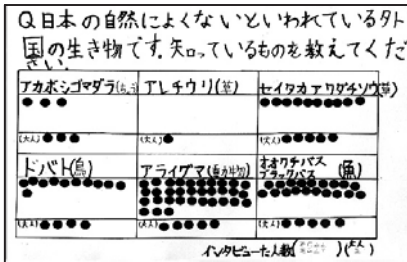 Q日本の自然によくないといわれているタト
国の生き物です。知っているものを教えてくだ
さい。
アカボシゴマダラ
アレチウリ(草)
セイタカアワダチソウ(草)
(大人)
(大人)
(大人)
ドバト(鳥)
アライグマ(動物)
オオクチバス
ブラックバス
(魚)
(大人)
(大人)
(大人)
インタビューた人数